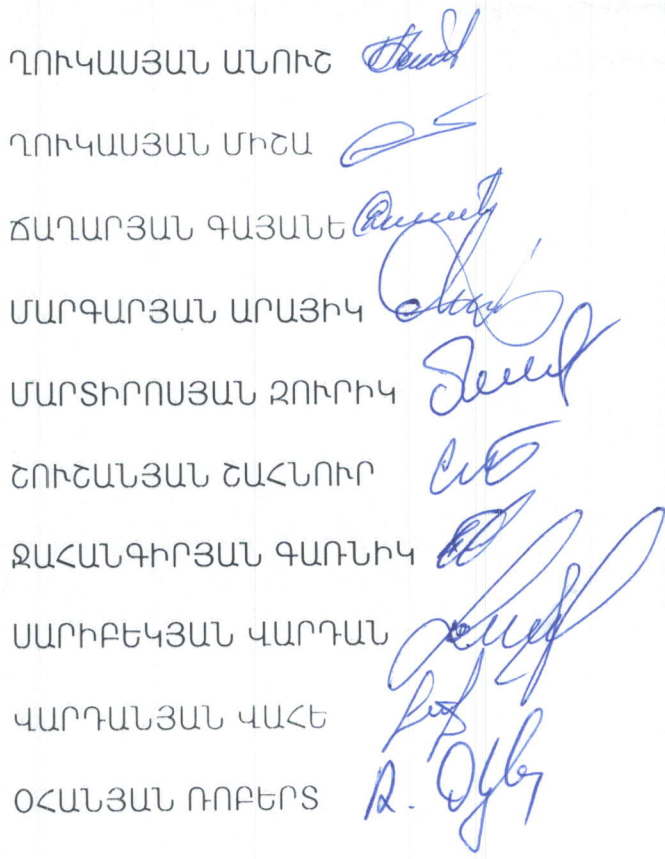 ՂՈՒԿԱՍՅԱՆ ԱՆՈՒՇ
ՂՈՒԿԱՍՅԱՆ ՄԻՇԱ
ՃԱՂԱՐՅԱՆ ԳԱՅԱՆԵ
ՄԱՐԳԱՐՅԱՆ ԱՐԱՅԻԿ
ՄԱՐՏԻՐՈՍՅԱՆ ԶՈՒՐԻԿ
ՇՈՒՇԱՆՅԱՆ ՇԱՀՆՈՒՐ
ՋԱՀԱՆԳԻՐՅԱՆ ԳԱՌՆԻԿ
ՍԱՐԻԲԵԿՅԱՆ ՎԱՐԴԱՆ
ՎԱՐԴԱՆՅԱՆ ՎԱՀԵ
ՕՀԱՆՅԱՆ ՌՈԲԵՐՏ